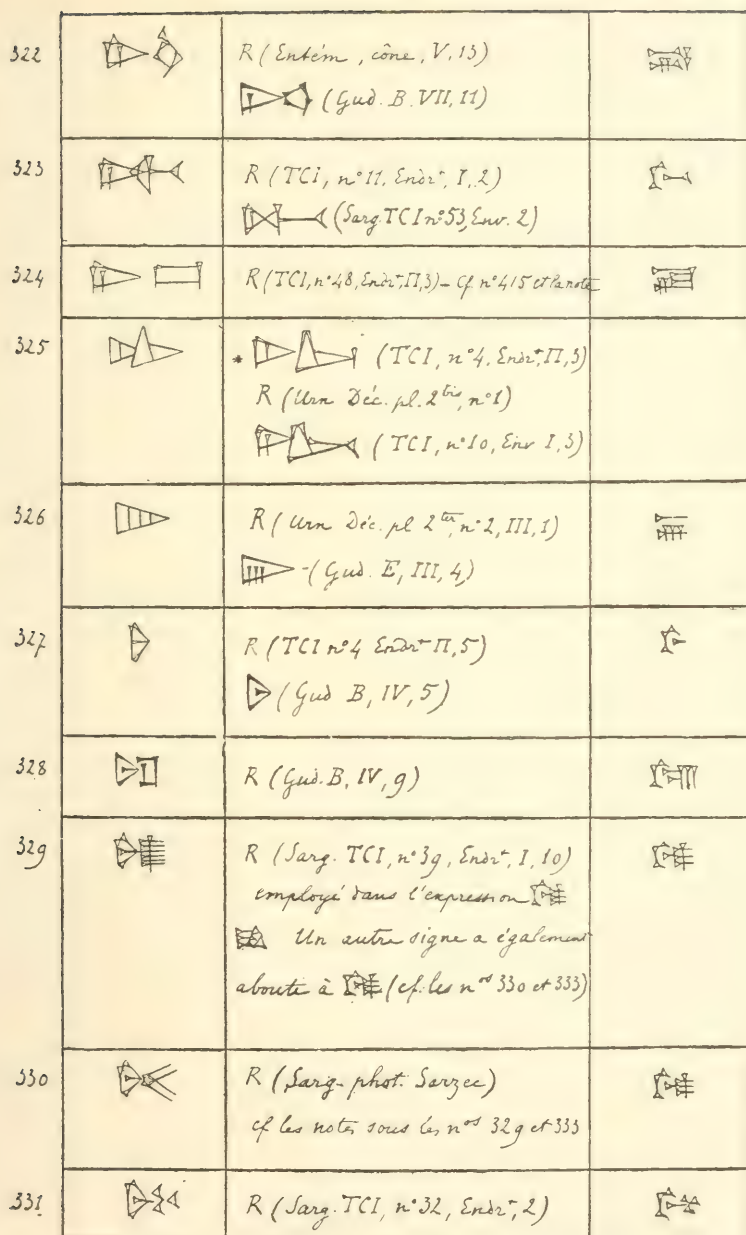 322 R (Entém, cône, V, 13)
(Gud. B. VII, 11)
323 R (TCI, n° 11, Endrt, I, 2)
(Sarg. TCI n° 53, Env. 2)
324 R (TCI, n° 48, Endrt, II, 3) – Cf n° 415 et la note
325 * (TCI, n° 4, Endrt, II, 3)
R (Urn Déc. pl. 2 bis, n° 1)
(TCI, n° 10, Env I, 3)
326 R (Urn Déc. pl 2 ter, n° 2, III, 1)
(Gud. E, III, 4)
327 R (TCI n° 4 Endrt II, 5)
(Gud B, IV, 5)
328 R (Gud. B, IV, 9)
329 R (Sarg. TCI, n° 39, Endrt, I, 10)
employé dans l'expression
Un autre signe a également
abouti à (cf. les nos 330 et 333)
330 R (Sarg. phot. Sarzec)
cf les notes sous les nos 329 et 333
331 R (Sarg. TCI, n° 32, Endrt, 2)